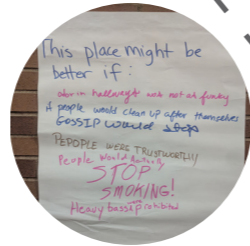 This place might be
better if:
odor in hallways was not so funky
if people would clean up after themselves
GOSSIP would stop
PEPOPLE WERE TRUSTWORTHY
People Would
STOP
SMOKING!
Heavy